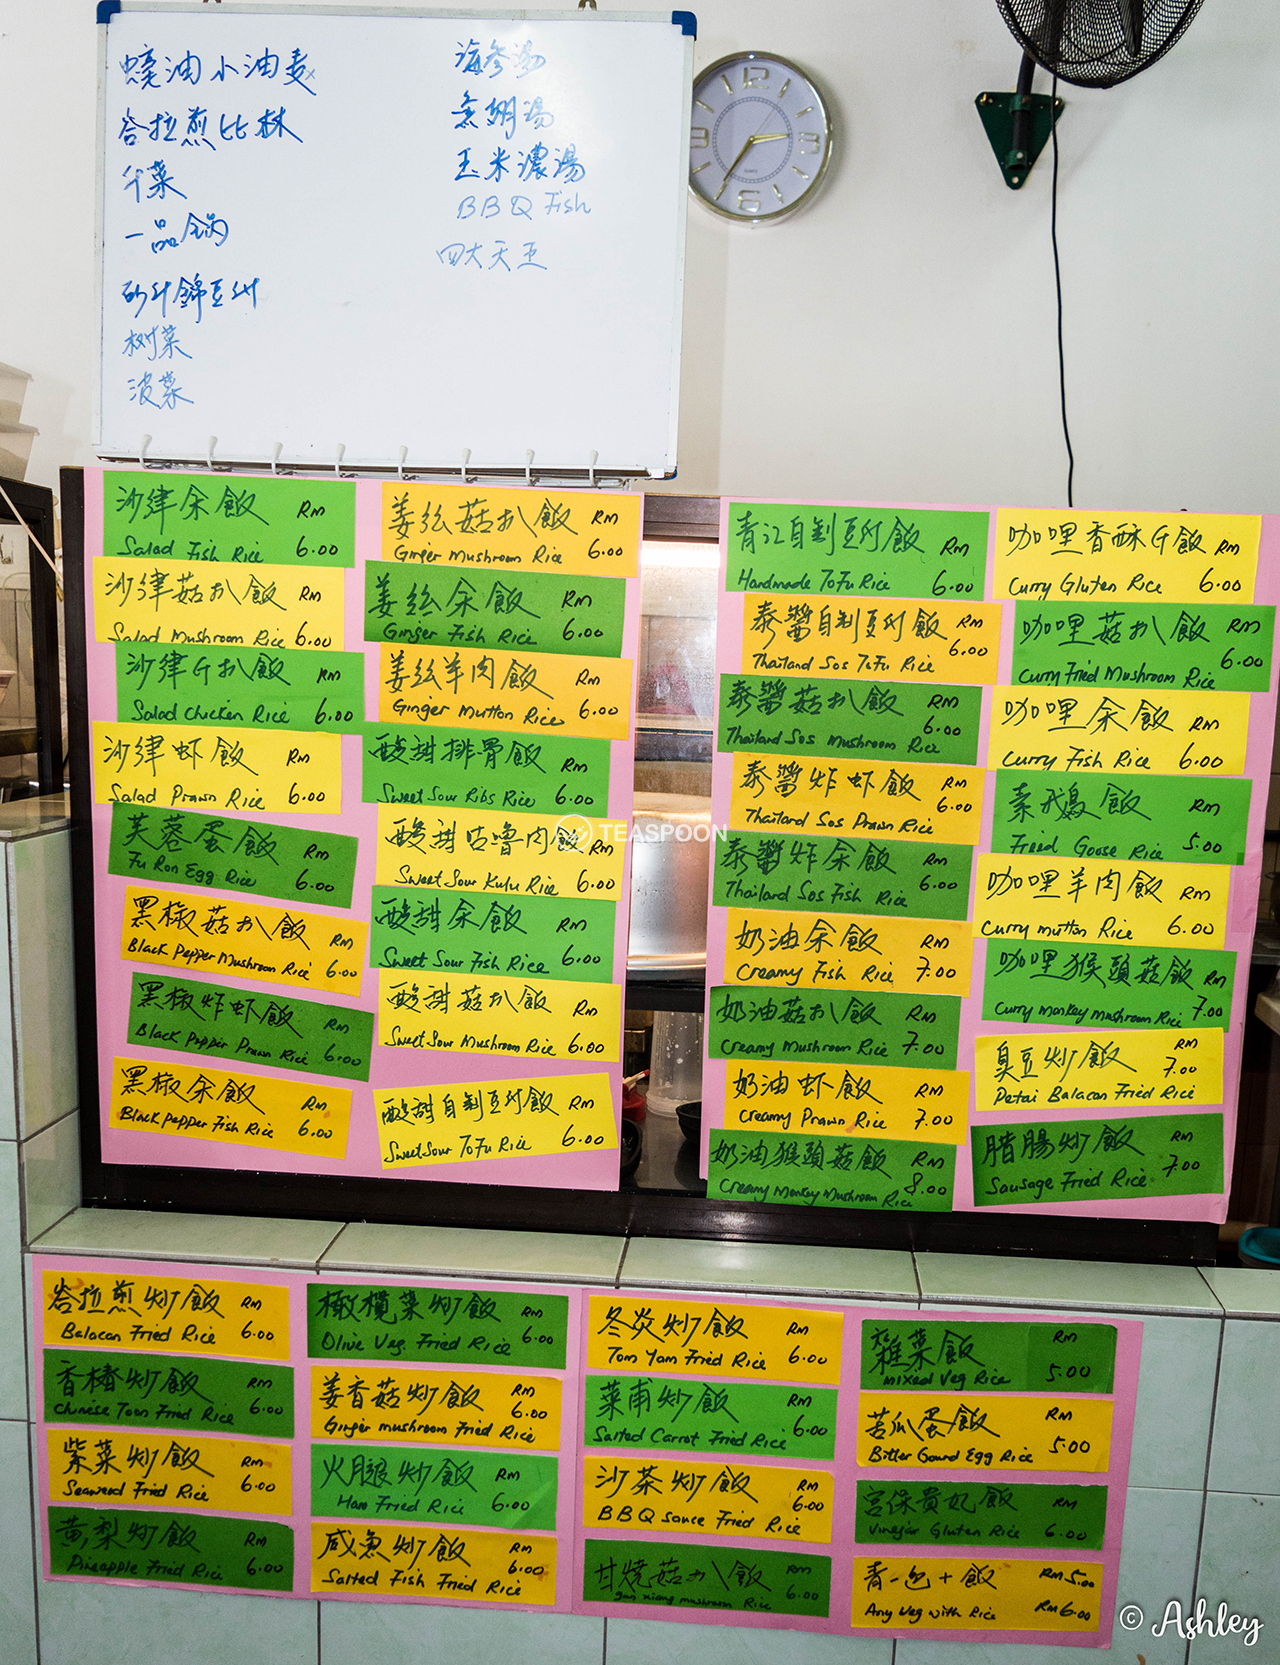 蠔油小油麦
峇拉煎比林
千菜
一品锅
砂爹錦豆卅
树菜
波菜
海参湯
素翅湯
玉米濃湯
BBQ Fish
四大天王
沙律余飯 RM
Salad Fish Rice 6.00
沙律菇扒飯 RM
Salad Mushroom Rice 6.00
沙律G扒飯 RM
Salad Chicken Rice 6.00
沙律虾飯 RM
Salad Prawn Rice 6.00
芙蓉蛋飯 RM
Fu Ron Egg Rice 6.00
黑椒菇扒飯 RM
Black Pepper Mushroom Rice 6.00
黑椒炸虾飯 RM
Black Pepper Prawn Rice 6.00
黑椒余飯 RM
Black Pepper Fish Rice 6.00
姜丝菇扒飯 RM
Ginger Mushroom Rice 6.00
姜丝余飯 RM
Ginger Fish Rice 6.00
姜丝羊肉飯 RM
Ginger Mutton Rice 6.00
酸甜排骨飯 RM
Sweet Sour Ribs Rice 6.00
酸甜咕嚕肉飯 RM
Sweet Sour Kulu Rice 6.00
酸甜余飯 RM
Sweet Sour Fish Rice 6.00
酸甜菇扒飯 RM
Sweet Sour Mushroom Rice 6.00
酸甜自制豆付飯 RM
Sweet Sour ToFu Rice 6.00
TEASPOON
青江自制豆付飯 RM
Handmade ToFu Rice 6.00
泰醬自制豆付飯 RM
Thailand Sos ToFu Rice 6.00
泰醬菇扒飯 RM
Thailand Sos Mushroom Rice 6.00
泰醬炸虾飯 RM
Thailand Sos Prawn Rice 6.00
泰醬炸余飯 RM
Thailand Sos Fish Rice 6.00
奶油余飯 RM
Creamy Fish Rice 7.00
奶油菇扒飯 RM
Creamy Mushroom Rice 7.00
奶油虾飯 RM
Creamy Prawn Rice 7.00
奶油猴頭菇飯 RM
Creamy Monkey Mushroom Rice 8.00
咖哩香酥G飯 RM
Curry Gluten Rice 6.00
咖哩菇扒飯 RM
Curry Fried Mushroom Rice 6.00
咖哩余飯 RM
Curry Fish Rice 6.00
素飛鵝飯 RM
Fried Goose Rice 5.00
咖哩羊肉飯 RM
Curry mutton Rice 6.00
咖哩猴頭菇飯 RM
Curry monkey mushroom Rice 7.00
臭豆炒飯 RM
Petai Balacan Fried Rice 7.00
腊腸炒飯 RM
Sausage Fried Rice 7.00
峇拉煎炒飯 RM
Balacan Fried Rice 6.00
香椿炒飯 RM
Chinese Toon Fried Rice 6.00
紫菜炒飯 RM
Seaweed Fried Rice 6.00
黄梨炒飯 RM
Pineapple Fried Rice 6.00
橄欖菜炒飯 RM
Olive Veg. Fried Rice 6.00
姜香菇炒飯 RM
Ginger mushroom Fried Rice 6.00
火腿炒飯 RM
Ham Fried Rice 6.00
咸魚炒飯 RM
Salted Fish Fried Rice 6.00
冬炎炒飯 RM
Tom Yam Fried Rice 6.00
菜甫炒飯 RM
Salted Carrot Fried Rice 6.00
沙茶炒飯 RM
BBQ sauce Fried Rice 6.00
甘燒菇扒飯 RM
gan xiang mushroom Rice 6.00
雜菜飯 RM
mixed Veg Rice 5.00
苦瓜蛋飯 RM
Bitter Gourd Egg Rice 5.00
宫保贵妃飯 RM
Vinegar Gluten Rice 6.00
青一包+飯 RM 5.00
Any Veg with Rice RM 6.00
© Ashley